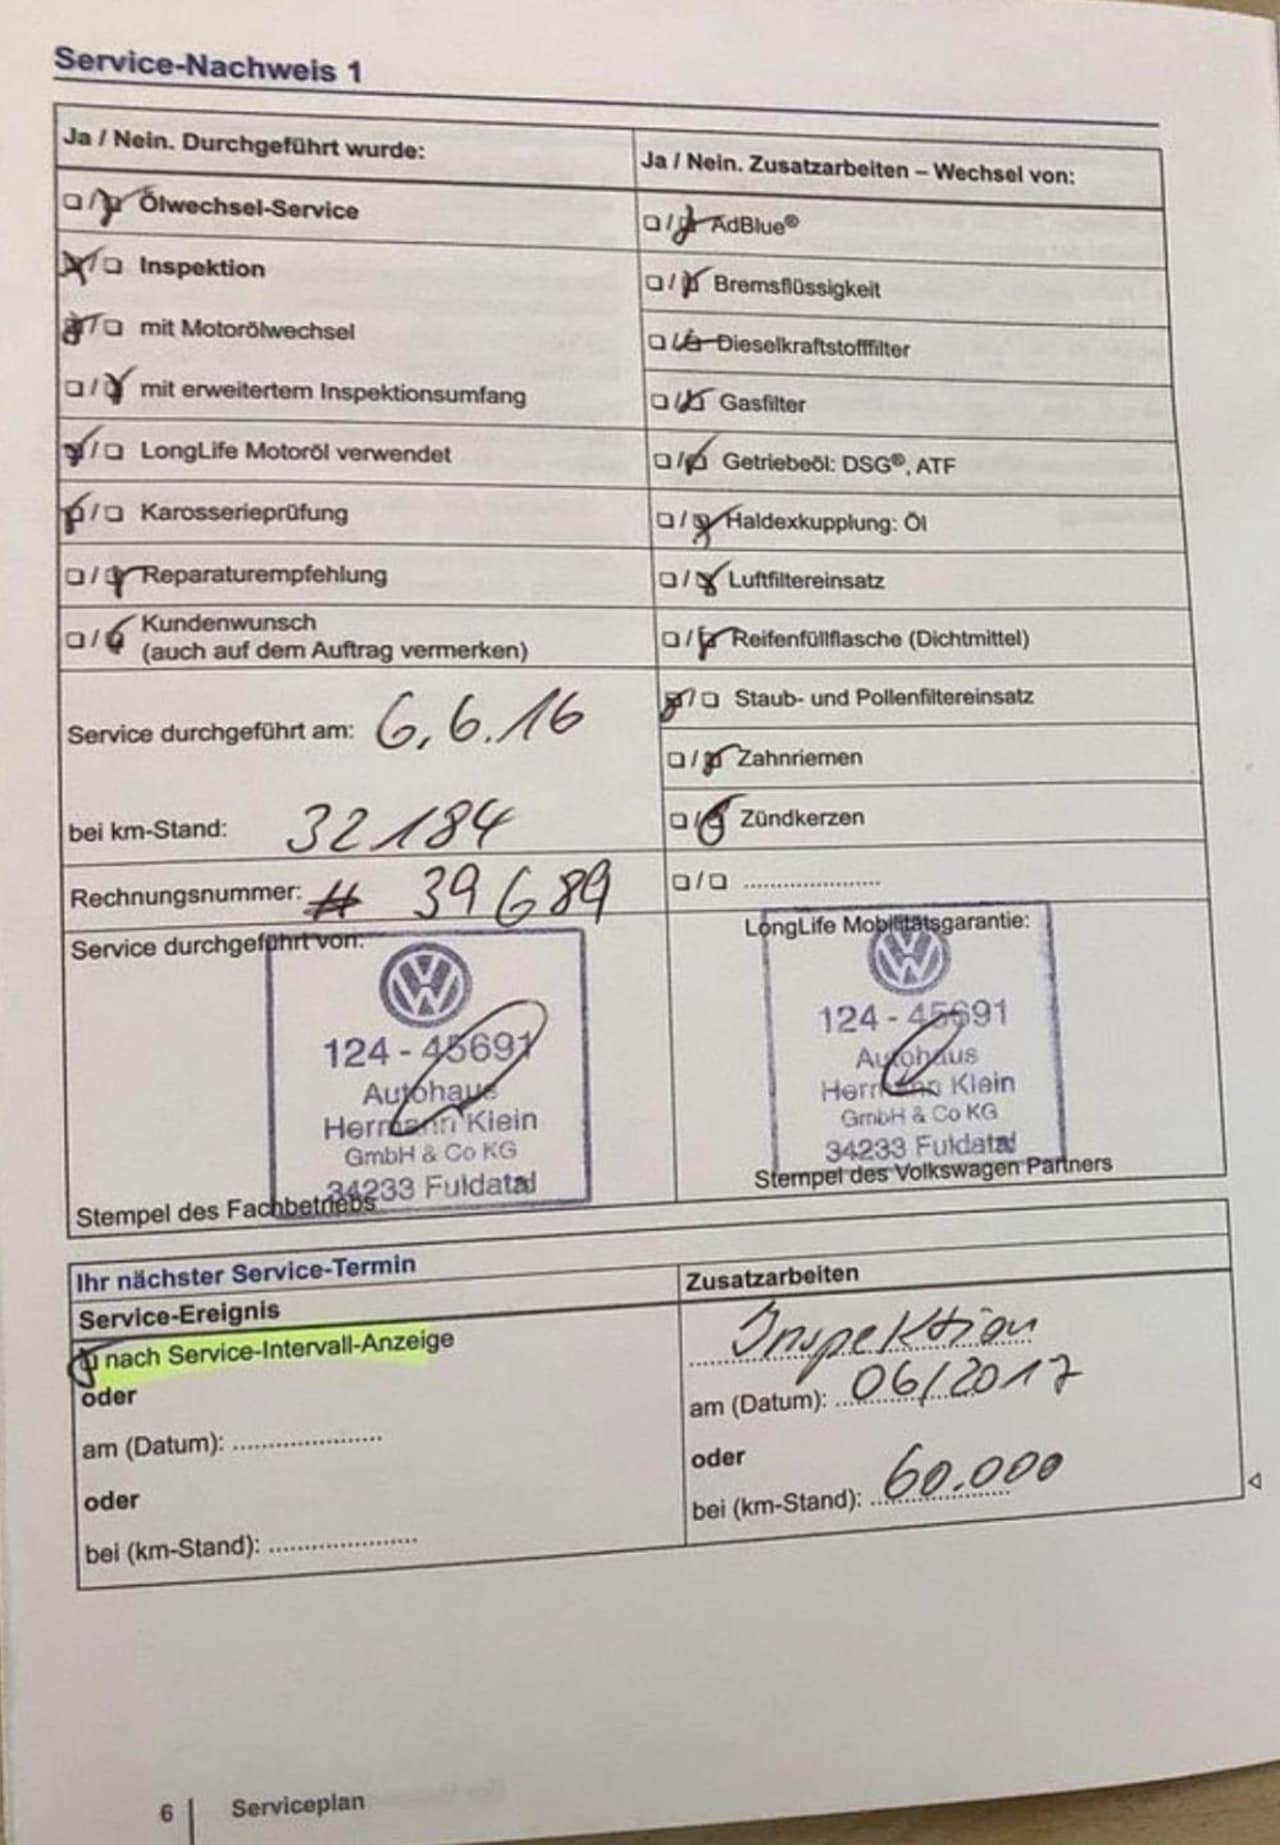 Service-Nachweis 1
Ja / Nein. Durchgeführt wurde:
☐/☒ Ölwechsel-Service
☒/☐ Inspektion
☒/☐ mit Motorölwechsel
☐/☒ mit erweitertem Inspektionsumfang
☒/☐ LongLife Motoröl verwendet
☒/☐ Karosserieprüfung
☐/☒ Reparaturempfehlung
☐/☒ Kundenwunsch
(auch auf dem Auftrag vermerken)
Service durchgeführt am: 6.6.16
bei km-Stand: 32184
Rechnungsnummer: # 39689
Service durchgeführt von:
124 - 45691
Autohaus
Hermann Klein
GmbH & Co KG
34233 Fuldatal
Stempel des Fachbetriebs
Ja / Nein. Zusatzarbeiten – Wechsel von:
☐/☒ AdBlue®
☐/☒ Bremsflüssigkeit
☐/☒ Dieselkraftstofffilter
☐/☒ Gasfilter
☐/☒ Getriebeöl: DSG®, ATF
☐/☒ Haldexkupplung: Öl
☐/☒ Luftfiltereinsatz
☐/☒ Reifenfüllflasche (Dichtmittel)
☒/☐ Staub- und Pollenfiltereinsatz
☐/☒ Zahnriemen
☐/☒ Zündkerzen
☐/☐ ......................
LongLife Mobilitätsgarantie:
124 - 45691
Autohaus
Hermann Klein
GmbH & Co KG
34233 Fuldatal
Stempel des Volkswagen Partners
Ihr nächster Service-Termin
Service-Ereignis
☒ nach Service-Intervall-Anzeige
oder
am (Datum): ......................
oder
bei (km-Stand): ......................
Zusatzarbeiten
Inspektion
am (Datum): 06/2017
oder
bei (km-Stand): 60.000
6 | Serviceplan